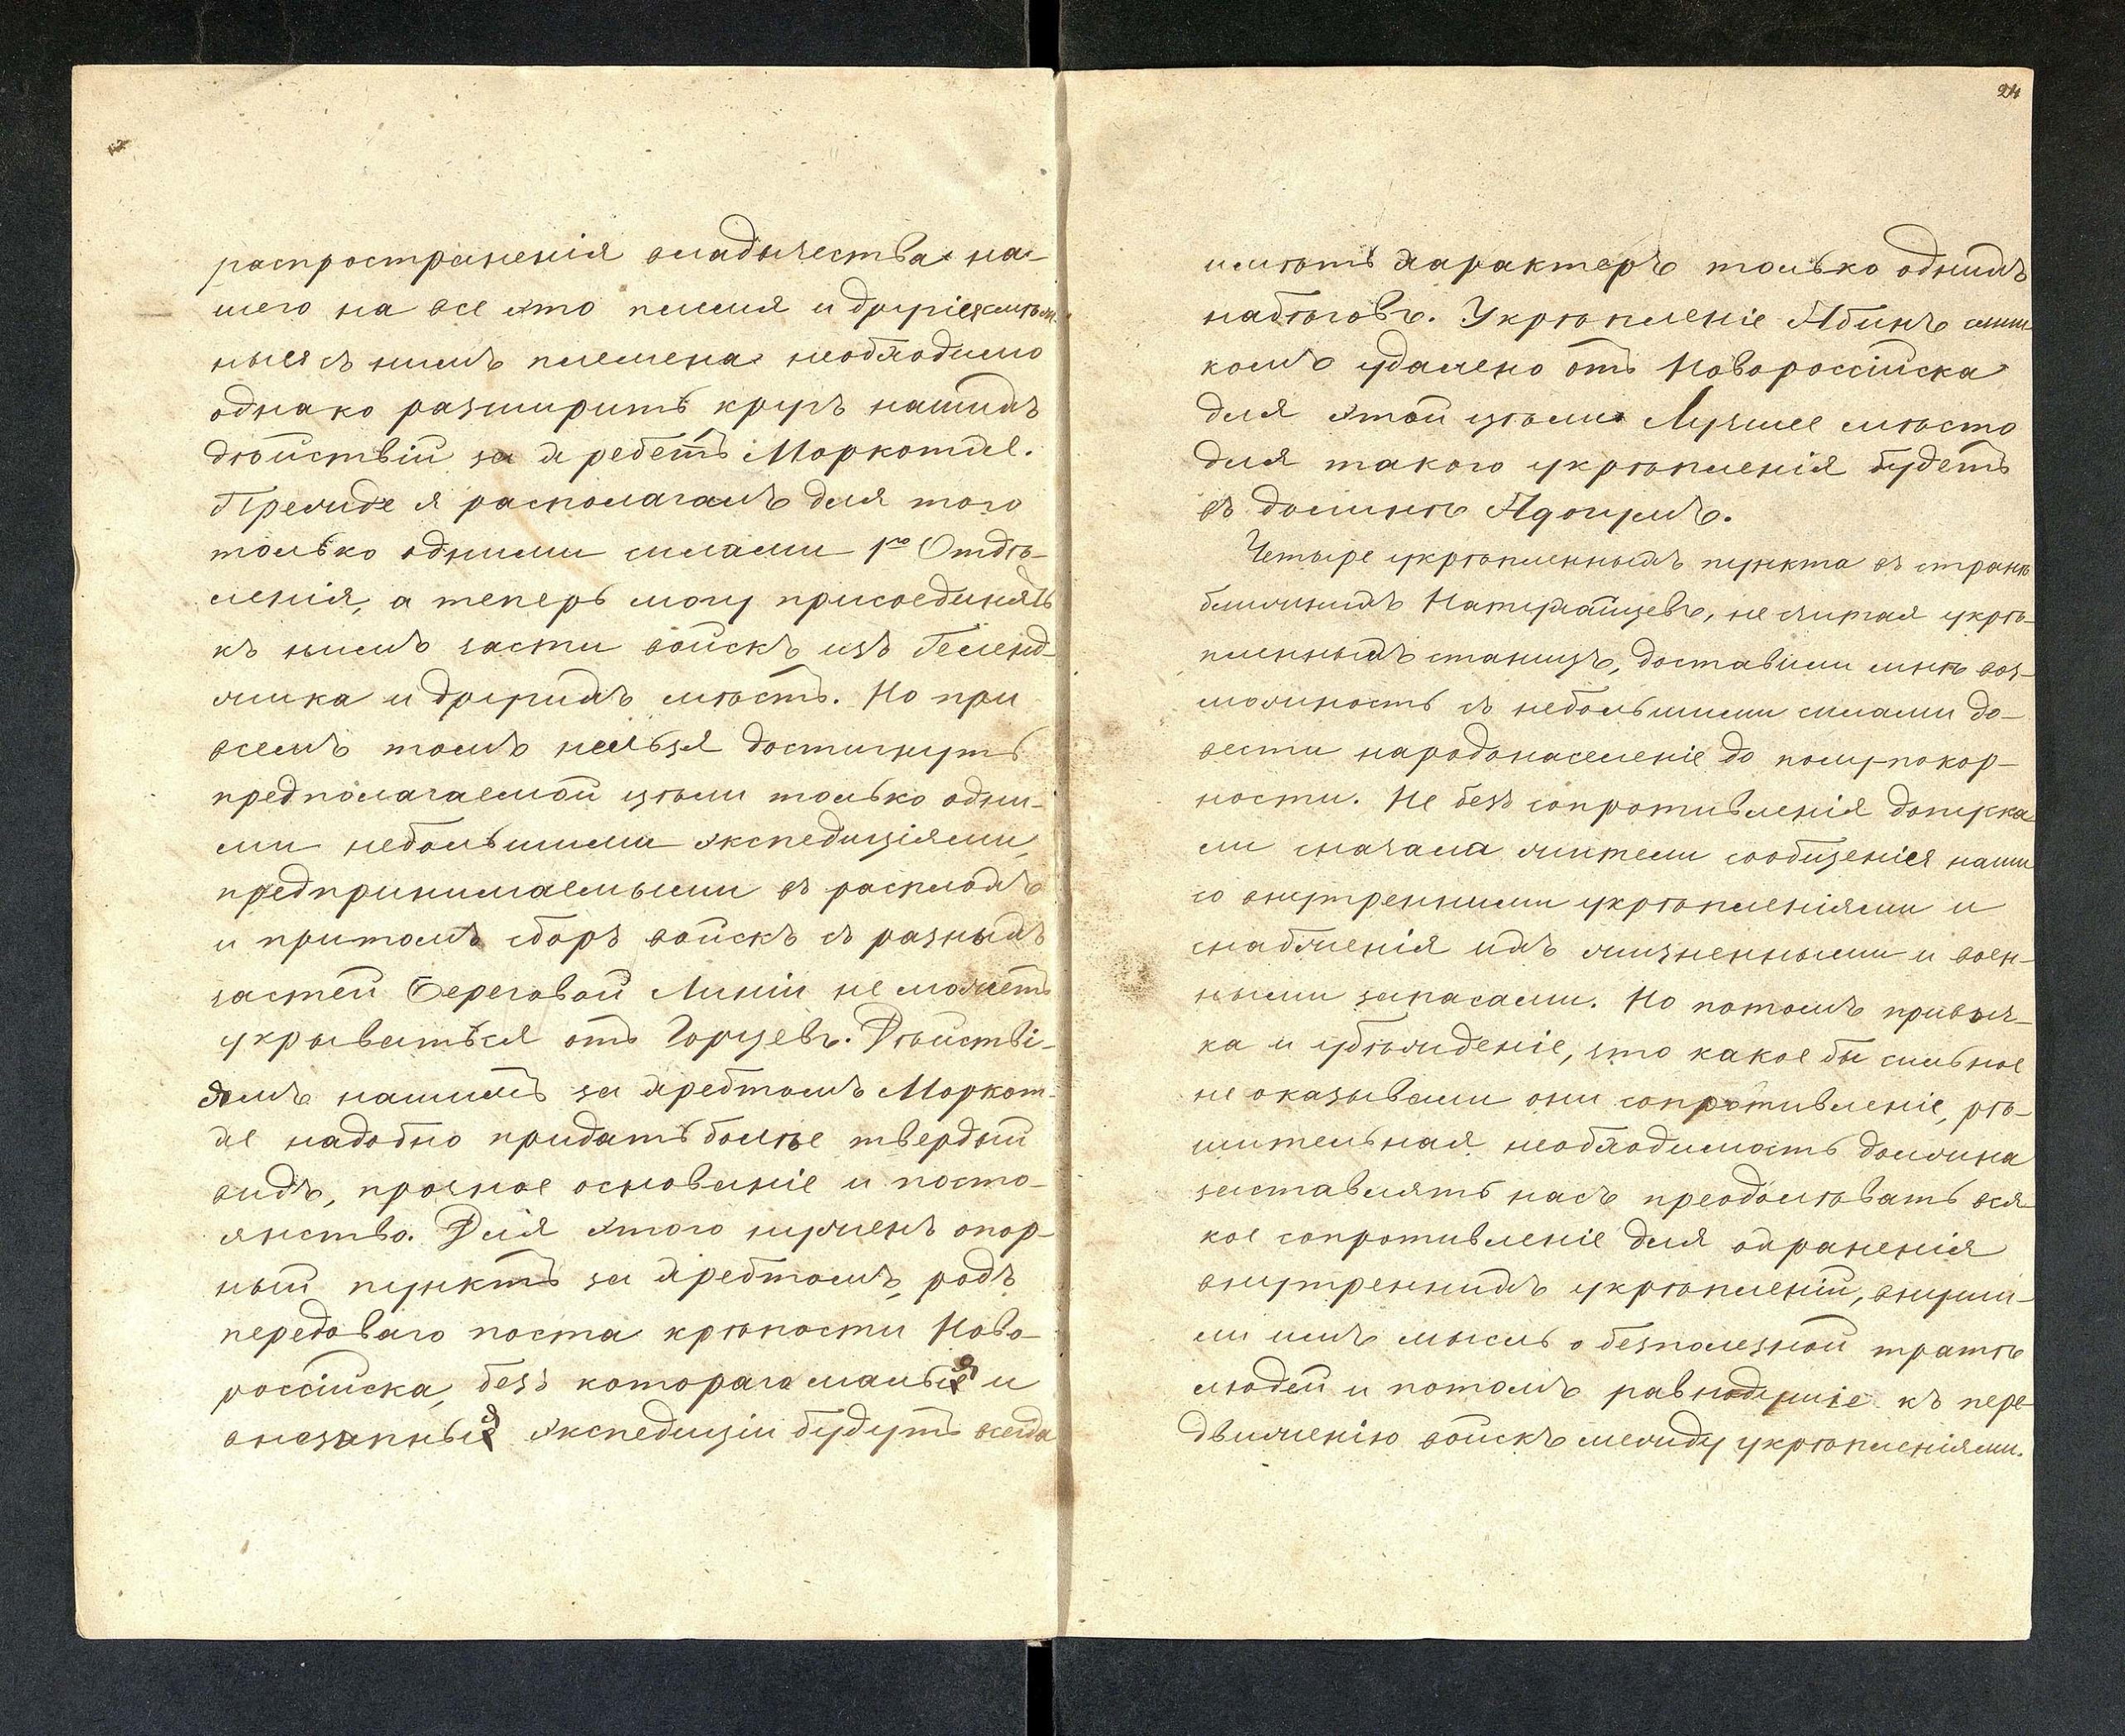 распространенія владычества на-
шего на все это племя и другія смѣж-
ныя съ нимъ племена необходимо
однако разширить кругъ нашихъ
дѣйствій за хребетъ Маркотхъ.
Прежде я располагалъ для того
только одними силами 1го Отдѣ-
ленія, а теперь могу присоединять
къ нимъ части войскъ изъ Геленд-
жика и другихъ мѣстъ. Но при
всемъ томъ нельзя достигнуть
предполагаемой цѣли только одни-
ми небольшими экспедиціями,
предпринимаемыми въ расплохъ
и притомъ сборъ войскъ съ разныхъ
частей Береговой Линіи не можетъ
укрываться отъ Горцевъ. Дѣйстві-
ямъ нашимъ за хребтомъ Маркот-
хе надобно придать болѣе твердый
видъ, прочное основаніе и посто-
янство. Для этого нуженъ опор-
ный пунктъ за хребтомъ, родъ
передоваго поста крѣпости Ново-
россійска, безъ котораго малыя и
внезапныя экспедиціи будутъ всегда
24
имѣть характеръ только однихъ
набѣговъ. Укрѣпленіе Абинъ слиш
комъ удалено отъ Новороссійска
для этой цѣли. Лучшее мѣсто
для такого укрѣпленія будетъ
въ долинѣ Адогумъ.
Четыре укрѣпленныхъ пункта въ странѣ
ближнихъ Натухайцевъ, не считая укрѣ-
пленныхъ станицъ, доставили мнѣ воз-
можность съ небольшими силами до-
вести народонаселеніе до полупокор-
ности. Не безъ сопротивленія допуска
ли сначала жители сообщенія наши
со внутренними укрѣпленіями и
снабженія ихъ жизненными и воен-
ными запасами. Но потомъ привыч-
ка и убѣжденіе, что какое бы сильное
не оказывали они сопротивленіе, рѣ-
шительная необходимость должна
заставлять насъ преодолѣвать вся-
кое сопротивленіе для охраненія
внутреннихъ укрѣпленій, внуши-
ли имъ мысль о безполезной тратѣ
людей и потомъ равнодушіе къ пере-
движенію войскъ между укрѣпленіями.